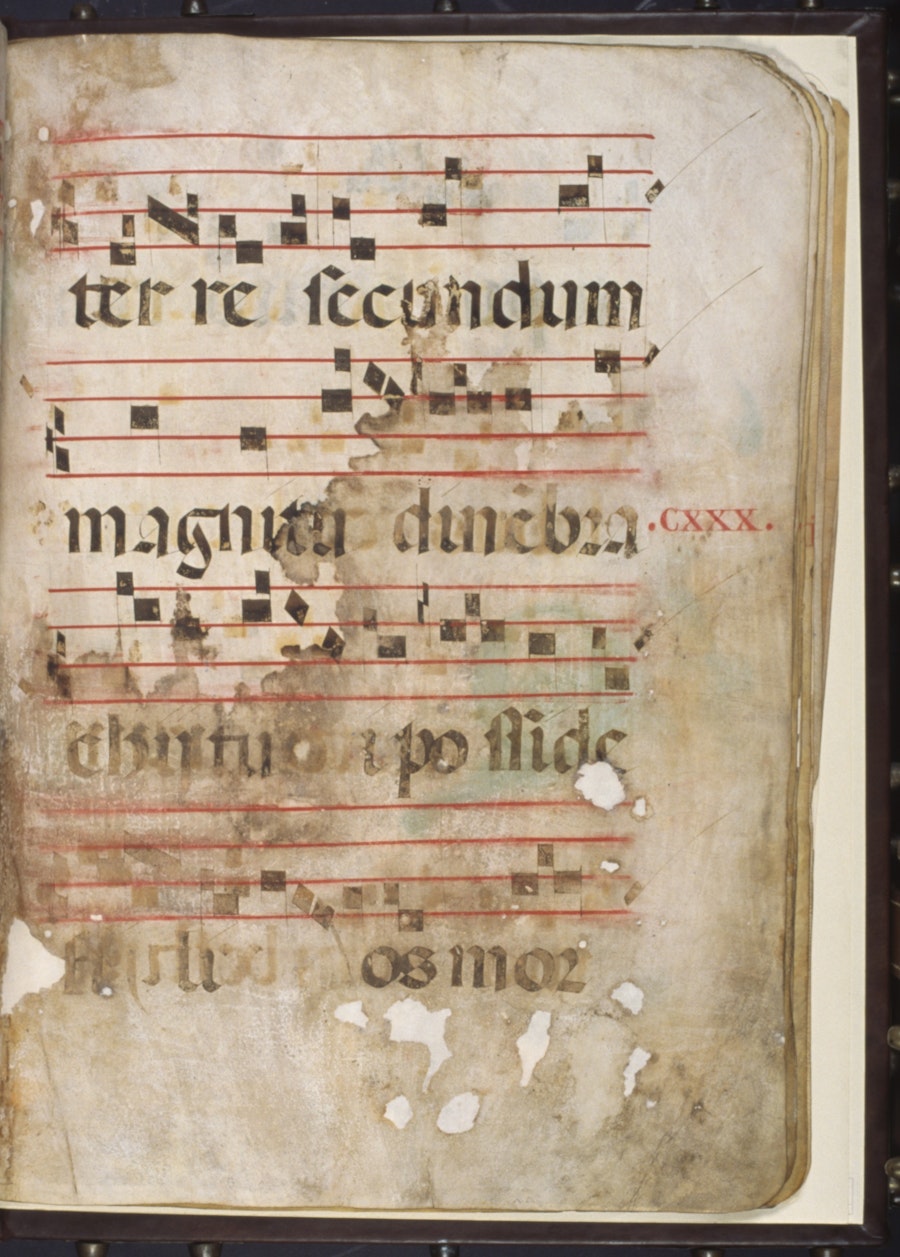 ter re secundum
magnitu dinē bra
.CXXX.
chii tui po sside
fi li os mor